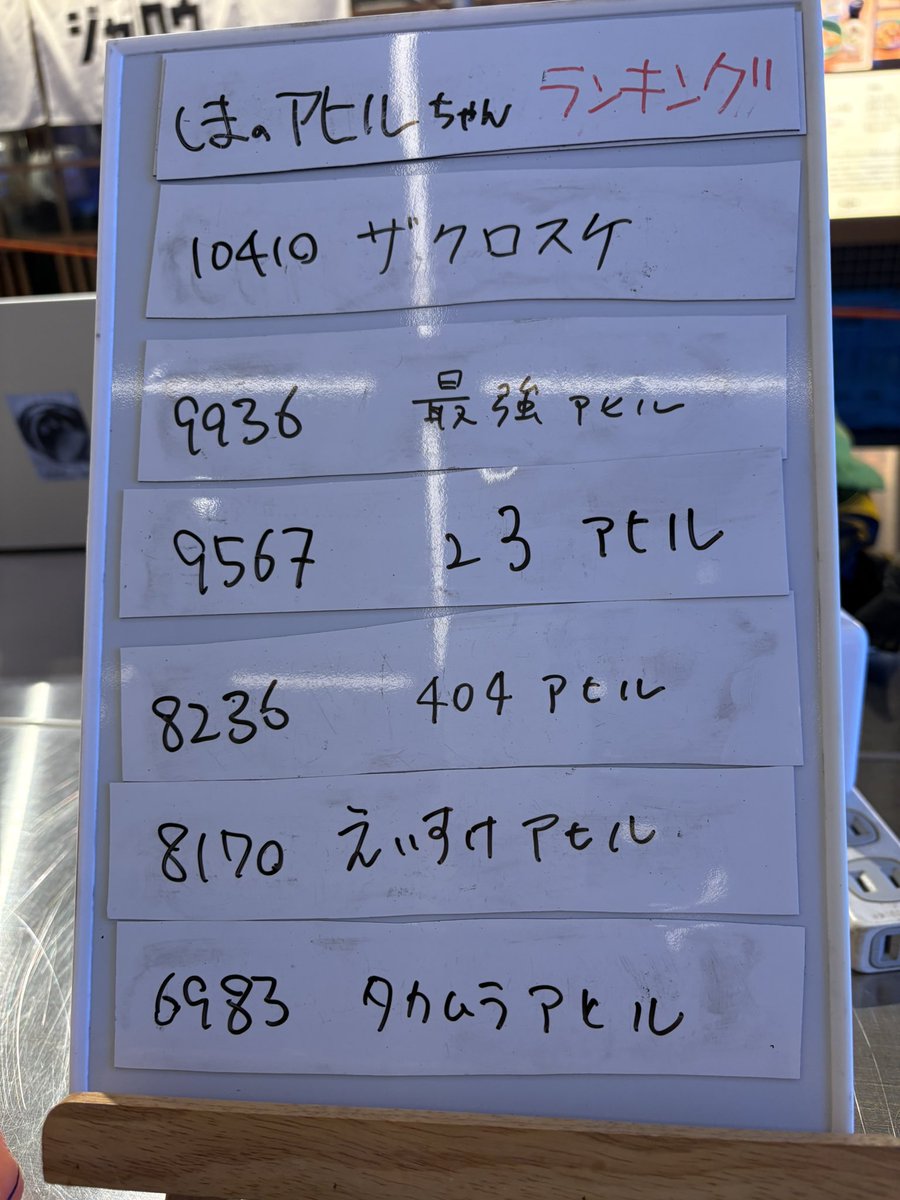 しまのアヒルちゃん ランキング
10410 ザクロスケ
9936 最強アヒル
9567 23アヒル
8236 404アヒル
8170 えいすけアヒル
6983 タカムラアヒル